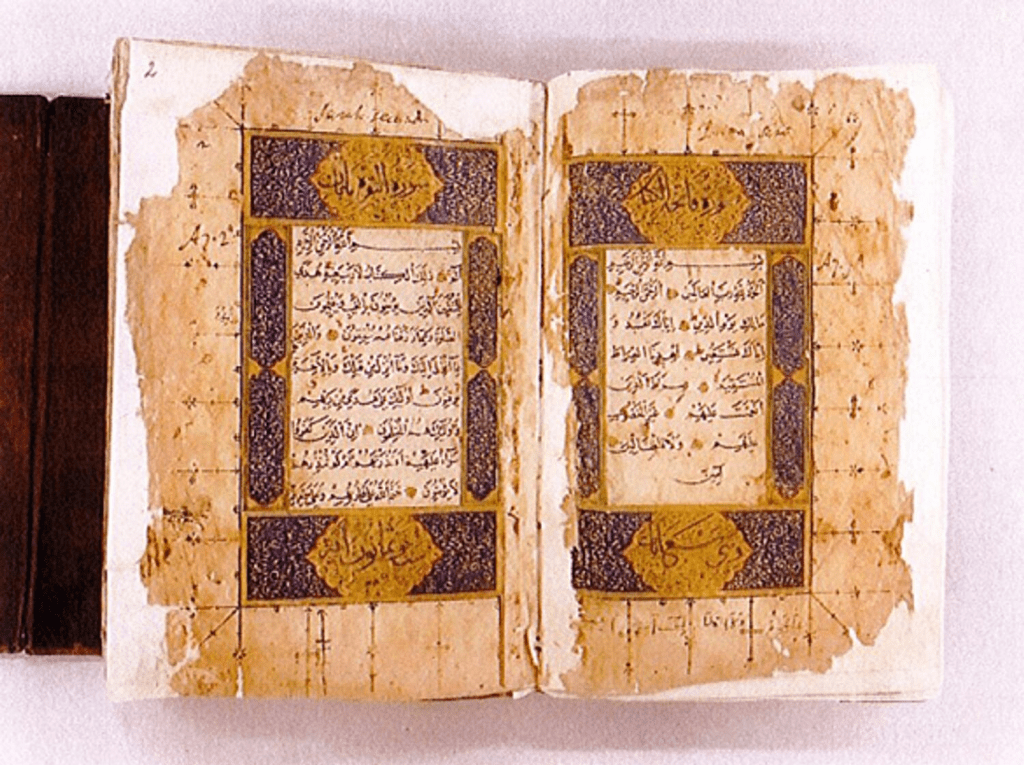 سورة فاتحة الكتاب
بسم الله الرحمن الرحيم
الحمد لله رب العالمين الرحمن الرحيم
مالك يوم الدين اياك نعبد و
اياك نستعين اهدنا الصراط
المستقيم صراط الذين
انعمت عليهم غير المغضوب
عليهم ولا الضالين
امين
وهي سبع ايات
2
سورة البقرة مايتان
بسم الله الرحمن الرحيم
الم ذلك الكتاب لا ريب فيه هدى
للمتقين الذين يؤمنون بالغيب ويقيمون
الصلوة ومما رزقناهم ينفقون والذين
بما انزل اليك وما انزل من قبلك وبالاخرة
يوقنون اولئك على هدى من ربهم
واولئك هم المفلحون ان الذين كفروا
سواء عليهم أانذرتهم ام لم تنذرهم
لا يؤمنون ختم الله على قلوبهم وعلى سمعهم
ست وثمانون اية